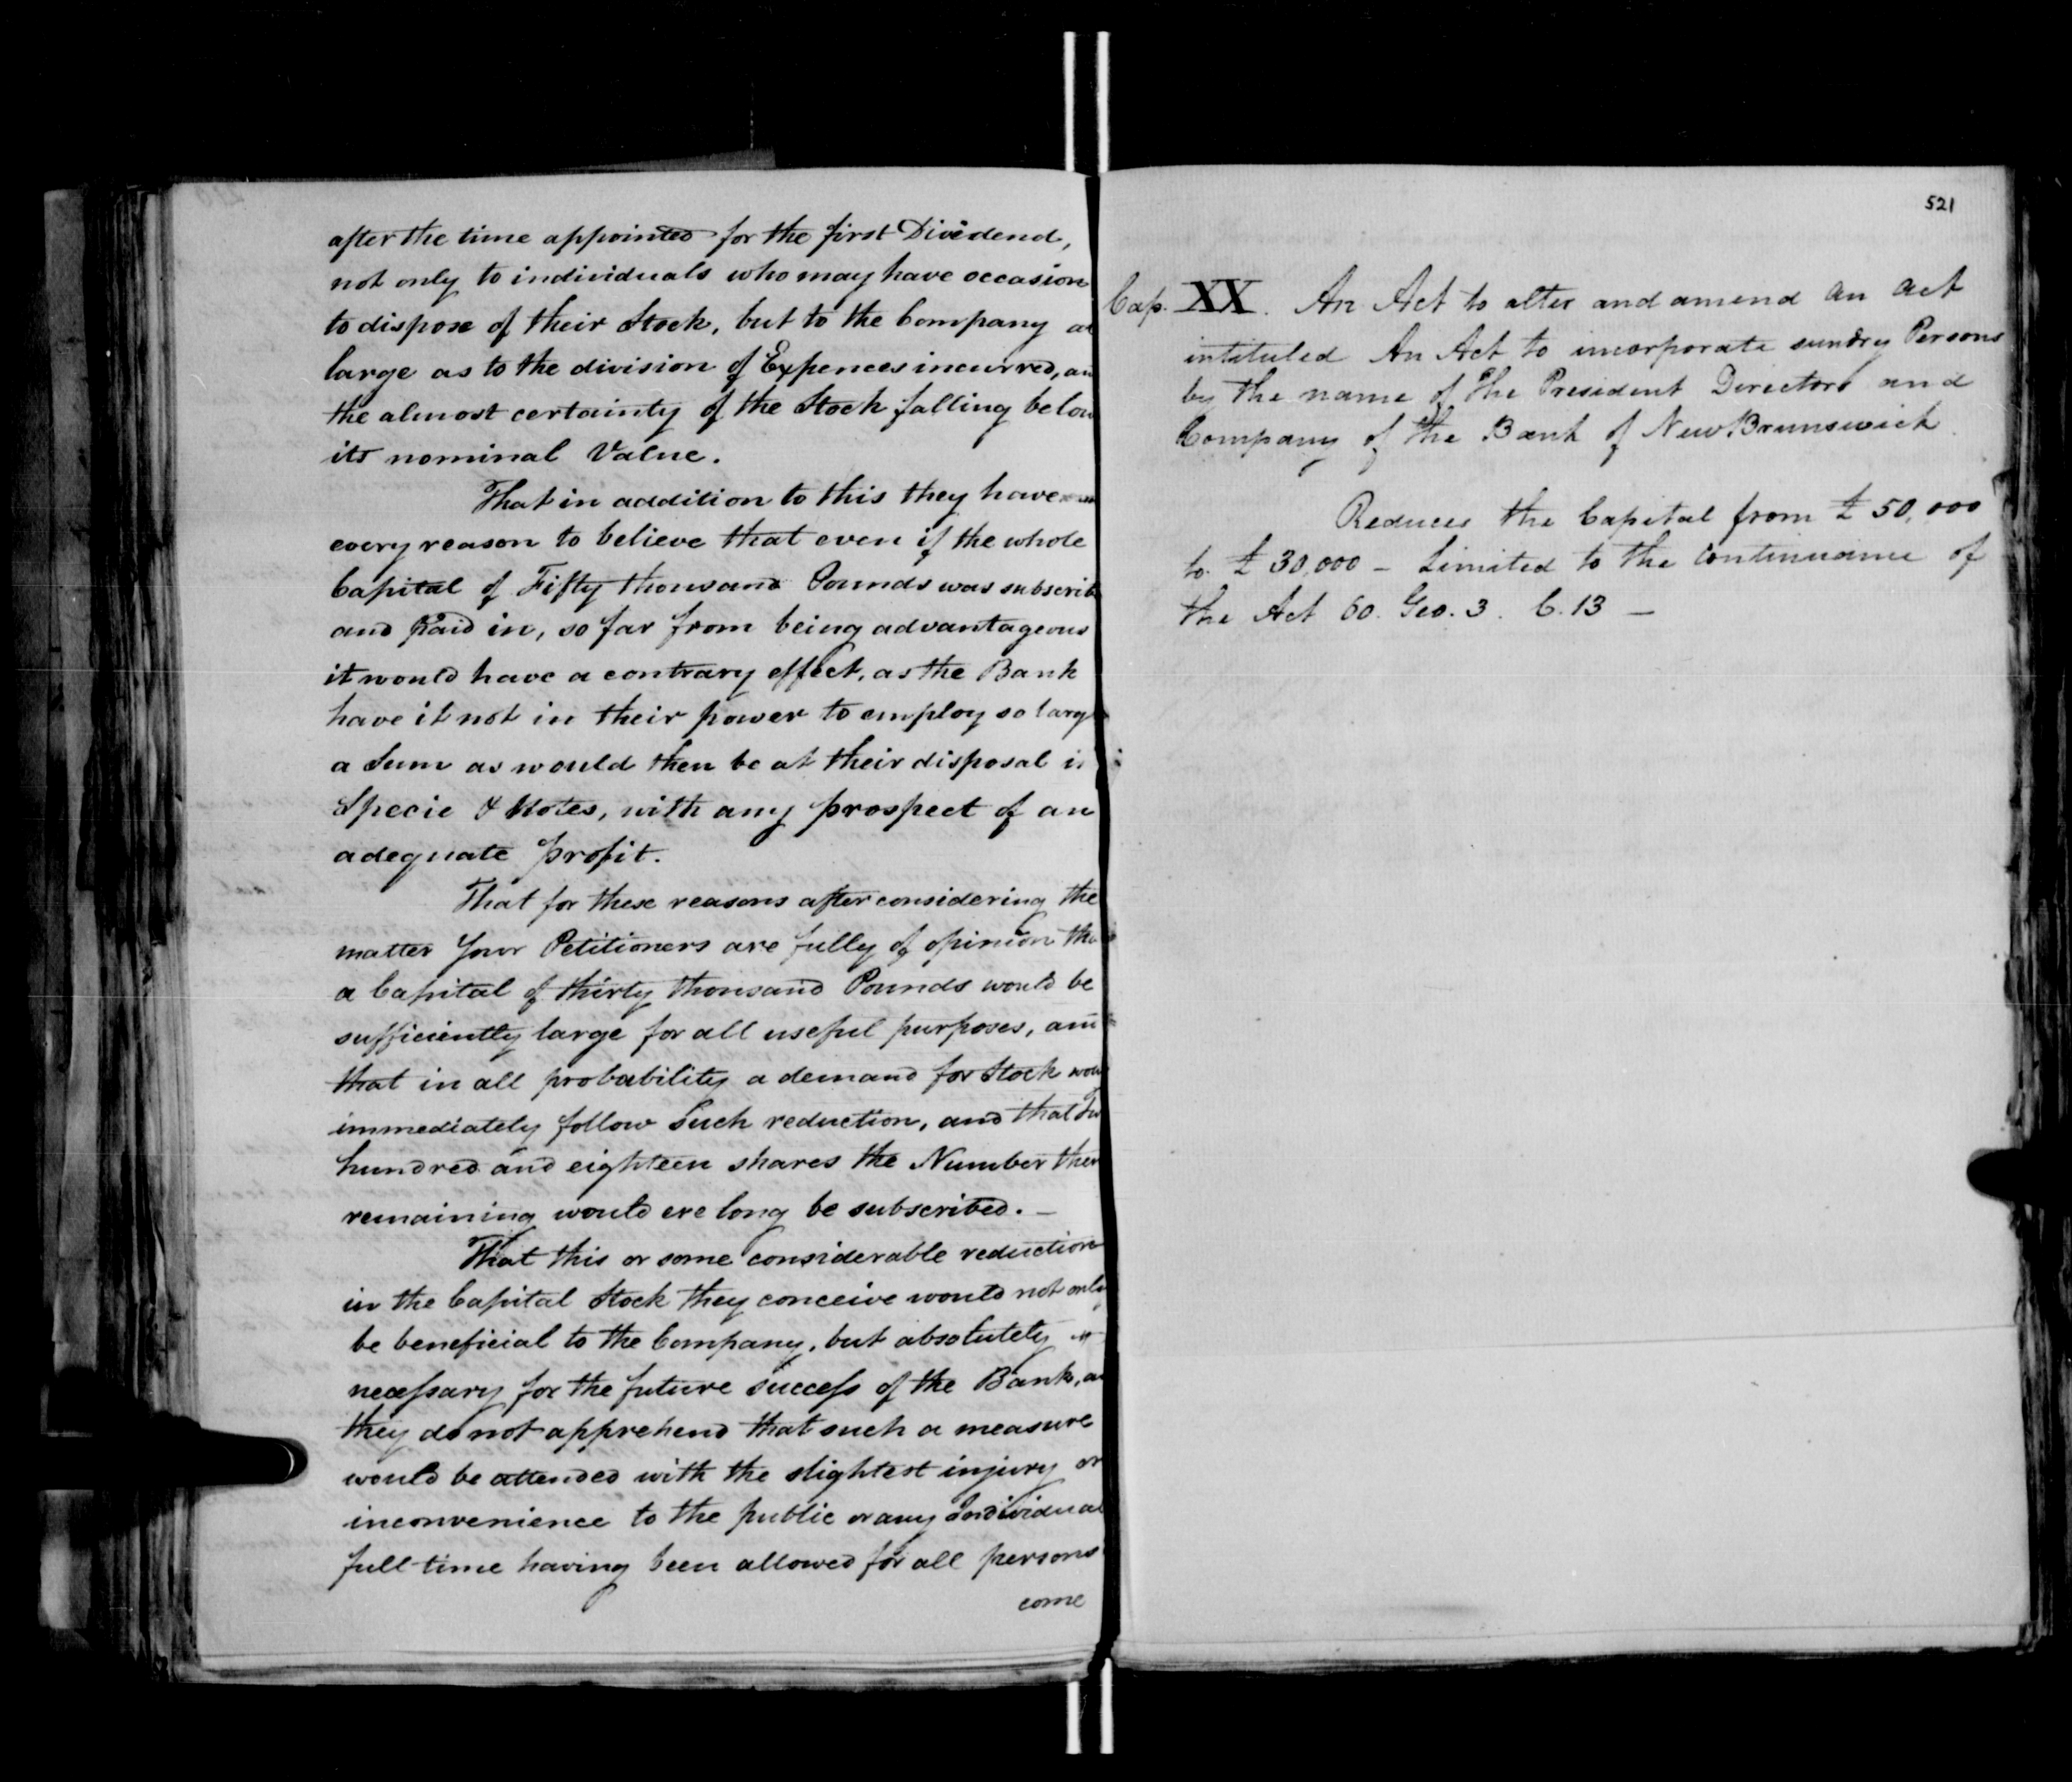 after the time appointed for the first Dividend,
not only to individuals who may have occasion
to dispose of their Stock, but to the Company a
large as to the division of Expences incurred, an
the almost certainty of the Stock falling below
its nominal Value.
That in addition to this they have
every reason to believe that even if the whole
Capital of Fifty thousand Pounds was subscrib
and paid in, so far from being advantageous
it would have a contrary effect, as the Bank
have it not in their power to employ so larg
a Sum as would then be at their disposal i
Specie & Notes, with any prospect of an
adequate profit.
That for these reasons after considering the
matter Your Petitioners are fully of opinion tha
a Capital of thirty thousand Pounds would be
sufficiently large for all useful purposes, an
that in all probability a demand for Stock wou
immediately follow Such reduction, and that
hundred and eighteen shares the Number then
remaining would ere long be subscribed. —
That this or some considerable reduction
in the Capital Stock they conceive would not only
be beneficial to the Company, but absolutely
necessary for the future success of the Bank, a
they do not apprehend that such a measure
would be attended with the slightest injury or
inconvenience to the public or any Individual
full time having been allowed for all persons
come
521
Cap. XX. An Act to alter and amend an act
intituled An Act to incorporate sundry Persons
by the name of the President Directors and
Company of the Bank of New Brunswick.
Reduces the Capital from £50,000
to £30,000 – Limited to the continuance of
the Act 60. Geo. 3. C. 13 —